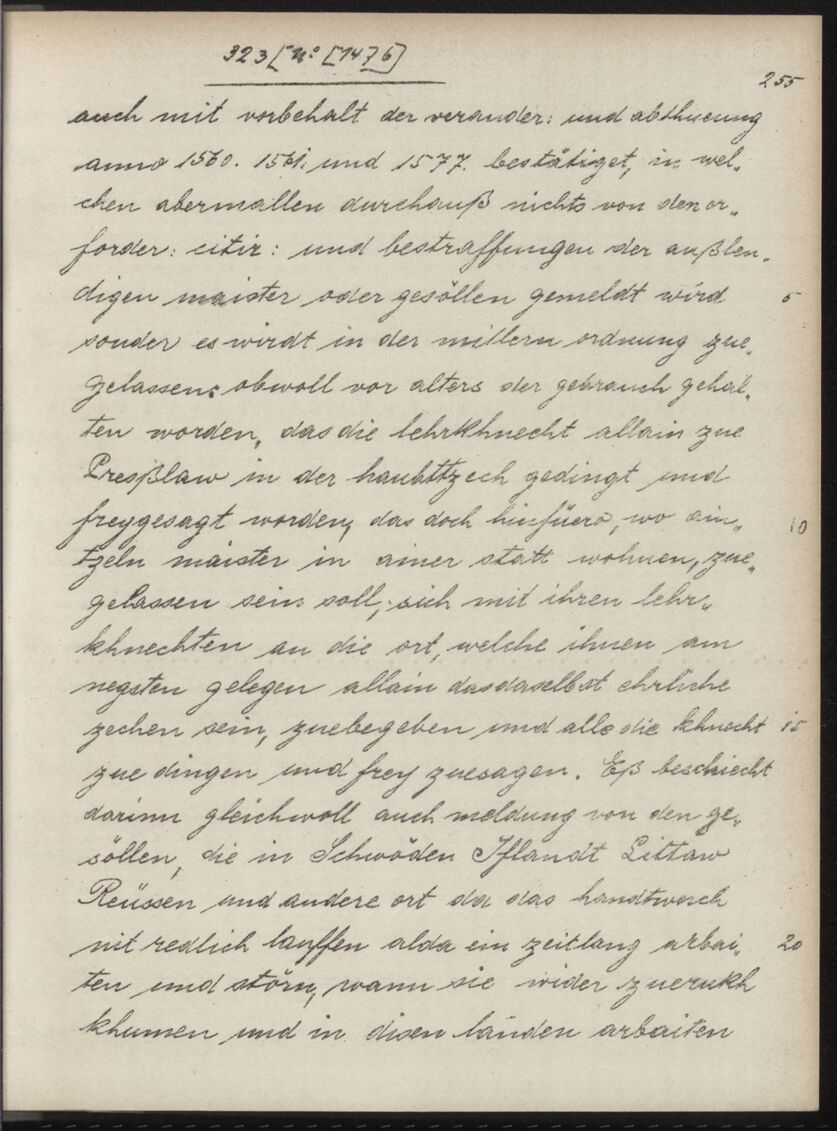 323 [N° [1476]
255
auch mit vorbehalt der verander: und abthueung
anno 1560. 1561: und 1577. bestätiget, in wel„
chen abermallen durchauß nichts von den er„
forder: citir: und bestraffungen der außlen„
digen maister oder gesöllen gemeldt wird 5
sonder es wirdt in der mittern ordnung zue„
gelassen: obwoll vor alters der gebrauch gehal„
ten worden, das die lehrkhnecht allain zue
Presßlaw in der haubttzech gedingt und
freygesagt worden, das doch hinfüero, wo ain„ 10
tzeln maister in ainer statt wohnen, zue„
gelassen sein soll, sich mit ihren lehr„
khnechten an die ort, welche ihnen am
negsten gelegen allain das daselbst ehrliche
zechen sein, zuebegeben und alls die khnecht 15
zue dingen und frey zuesagen. Eß beschiecht
darinn gleichwoll auch meldung von den ge„
söllen, die in Schwöden Iflandt Littaw
Reüssen und andere ort da das handtwerch
nit redlich lauffen alda ein zeitlang arbai„ 20
ten und störn, wann sie wider zuerukh
khumen und in disen landen arbaiten